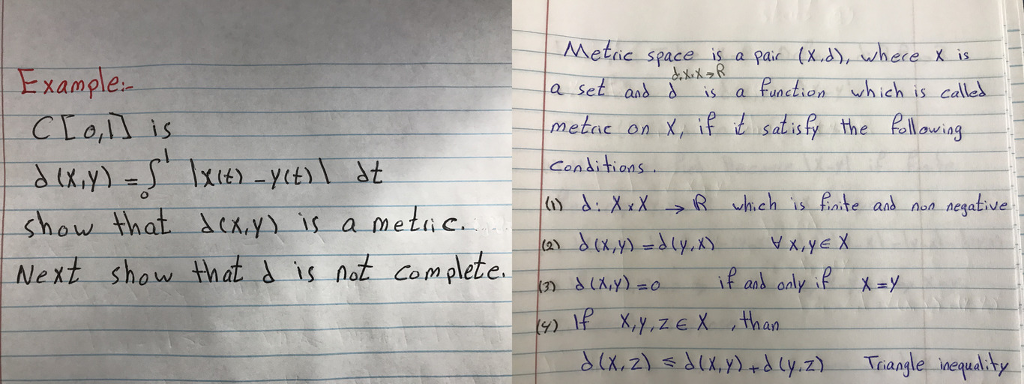 Example:-
C[0,1] is
d(x,y) = ∫₀¹ |x(t) - y(t)| dt
show that d(x,y) is a metric.
Next show that d is not complete.
Metric space is a pair (X,d), where X is
d:X×X→R
a set and d is a function which is called
metric on X, if it satisfy the following
conditions.
(1) d: X×X → R which is finite and non negative
(2) d(x,y) = d(y,x) ∀ x,y ∈ X
(3) d(x,y) = 0 if and only if x = y
(4) If x,y,z ∈ X, than
d(x,z) ≤ d(x,y) + d(y,z) Triangle inequality